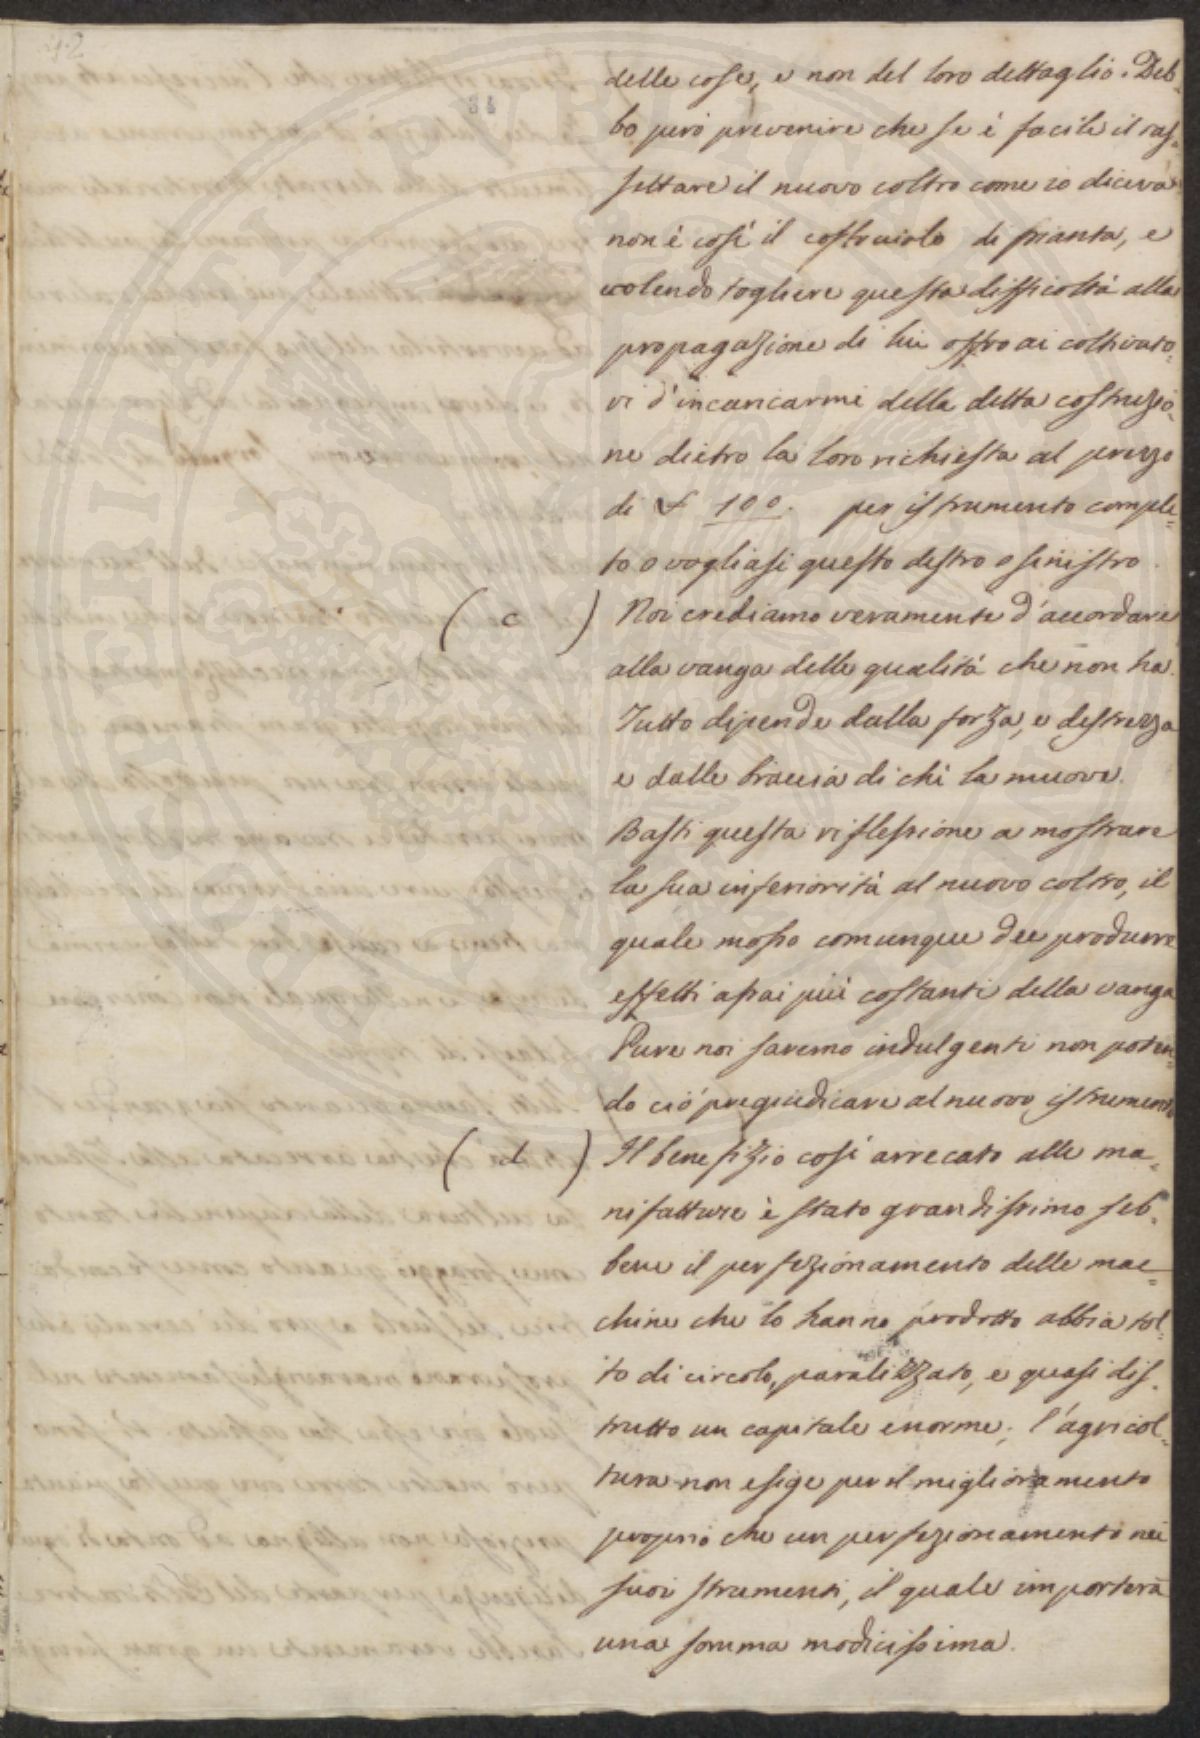 42
delle cose, e non del loro dettaglio. Deb-
bo però prevenire che se è facile il ras-
settare il nuovo coltro come io diceva
non è così il costruirlo di pianta, e
volendo togliere questa difficoltà alla
propagazione di lui offro ai coltivato-
ri d'incaricarmi della detta costruzio-
ne dietro la loro richiesta al prezzo
di £ 100. per istrumento comple-
to o vogliasi questo destro o sinistro.
( c ) Noi crediamo veramente d'accordare
alla vanga delle qualità che non ha.
Tutto dipende dalla forza, e destrezza
e dalle braccia di chi la muove.
Basti questa riflessione a mostrare
la sua inferiorità al nuovo coltro, il
quale mosso comunque dee produrre
effetti assai più costanti della vanga
Pure noi saremo indulgenti non poten-
do ciò pregiudicare al nuovo istrumento
( d ) Il benefizio così arrecato alle ma-
nifatture è stato grandissimo seb-
bene il perfezionamento delle mac-
chine che lo hanno prodotto abbia tol-
to di circolo, paralizzato, e quasi dis-
trutto un capitale enorme; l'agricol-
tura non esige per il miglioramento
proprio che un perfezionamento nei
suoi strumenti, il quale importerà
una somma modicissima.